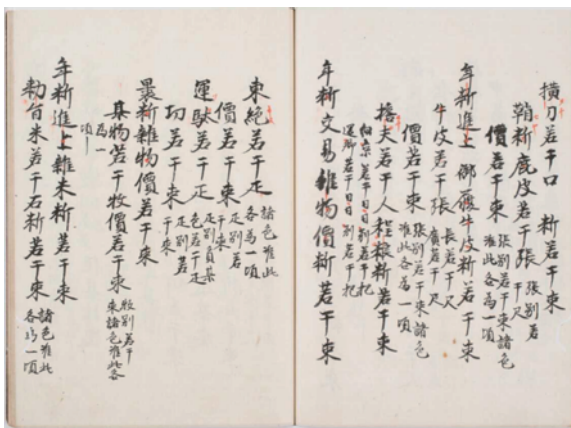 横刀若干口 料若干束
鞘料鹿皮若干張 張別若
干尺
價若干束 張別若干束諸色
准此各為一項
年料進上御履牛皮料若干束
牛皮若干張 長若干尺
廣若干尺
價若干束 張別若干束諸色
准此各為一項
擔夫若干人程粮料若干束
向京若干日日別若干把
還脚若干日日別若干把
年料交易雜物價料若干束
束絁若干疋 諸色准此
各為一項
價若干束 疋別若
干束
運駄若干疋 疋別負某
色若干疋
功若干束 疋別若
干束
雜物價若干束
某物若干 價若干束 別若干
束諸色准此各
為一
項
年料進上雜米料若干束
若干石料若干束 諸色准此
各為一項